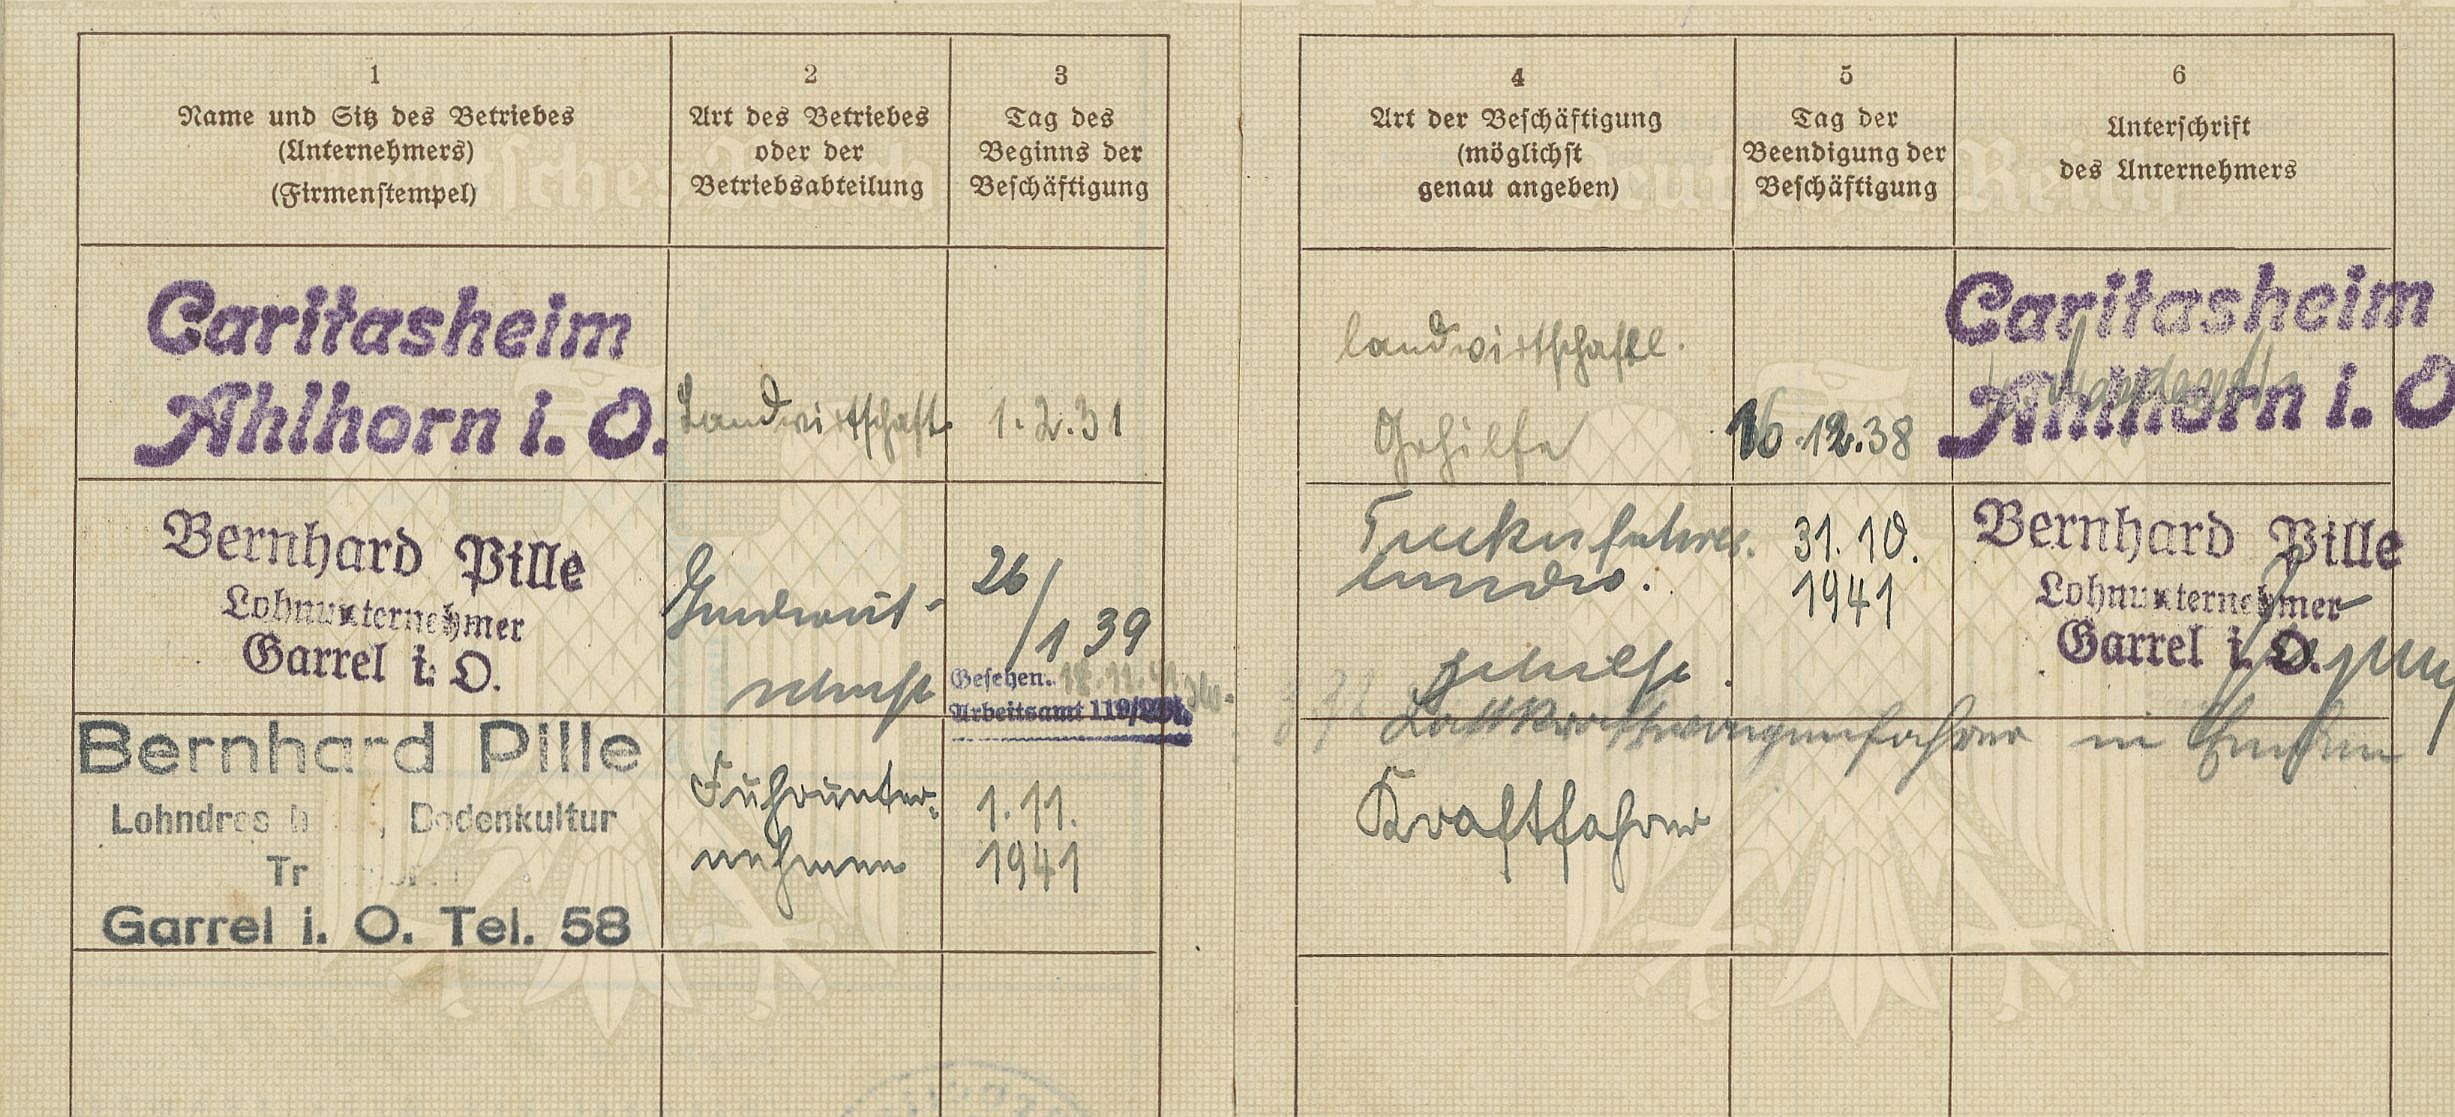 1
Name und Sitz des Betriebes
(Unternehmers)
(Firmenstempel)
2
Art des Betriebes
oder der
Betriebsabteilung
3
Tag des
Beginns der
Beschäftigung
4
Art der Beschäftigung
(möglichst
genau angeben)
5
Tag der
Beendigung der
Beschäftigung
6
Unterschrift
des Unternehmers
Caritasheim
Ahlhorn i. O.
Landwirtschaft
1.2.31
landwirtschaftl.
Gehilfe
16.12.38
Caritasheim
Ahlhorn i. O
Bernhard Pille
Lohnunternehmer
Garrel i. O.
Landwirt-
schaft
26/1 39
Gesehen. 18.11.41
Arbeitsamt
Treckerfahrer.
landw.
gehilfe.
31.10.
1941
Bernhard Pille
Lohnunternehmer
Garrel i. O.
z. Zt. Lastkraftwagenfahrer in Emden
Bernhard Pille
Bodenkultur
Garrel i. O. Tel. 58
Fuhrunter-
nehmen
1.11.
1941
Kraftfahrer